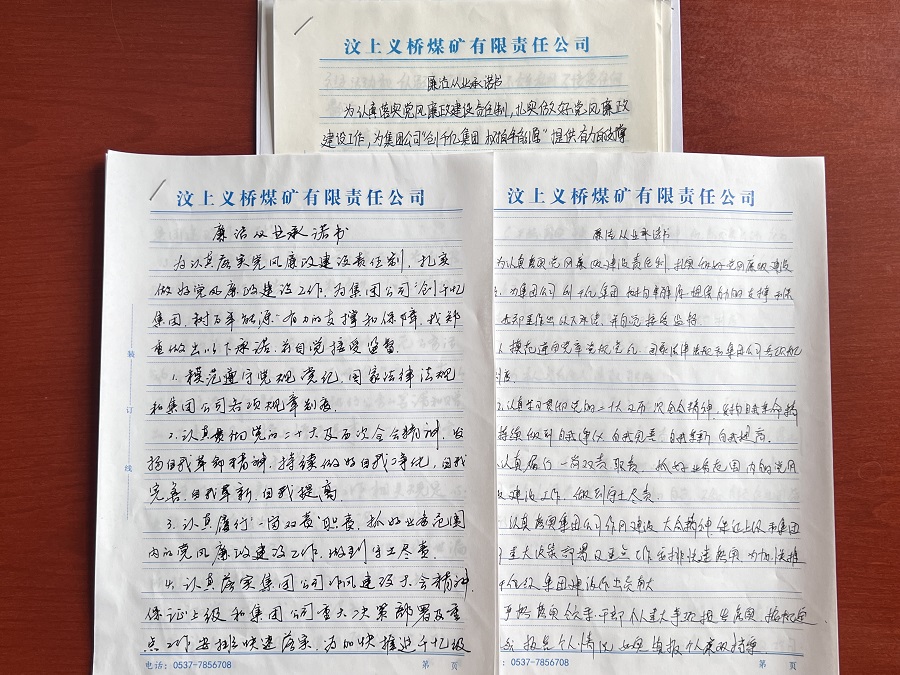 汶上义桥煤矿有限责任公司
廉洁从业承诺书
为认真落实党风廉政建设责任制,扎实做好党风廉政
建设工作,为集团公司“创千亿集团 树百年能源”提供有力的支撑
汶上义桥煤矿有限责任公司
廉洁从业承诺书
为认真落实党风廉政建设责任制,扎实
做好党风廉政建设工作,为集团公司“创千亿
集团,树百年能源”有力的支撑和保障,我郑
重做出以下承诺,并自觉接受监督.
1.模范遵守党规党纪,国家法律法规
和集团公司各项规章制度.
2.认真贯彻党的二十大及历次全会精神,发
扬自我革命精神,持续做好自我净化,自我
完善,自我革新,自我提高.
3.认真履行“一岗双责”职责,抓好业务范围
内的党风廉政建设工作,做到守土尽责.
4.认真落实集团公司作风建设大会精神,
保证上级和集团公司重大决策部署及重
点工作安排快速落实,为加快推进千亿级
电话:0537-7856708
第 页
装
订
线
汶上义桥煤矿有限责任公司
廉洁从业承诺书
为认真落实党风廉政建设责任制,扎实做好党风廉政建设
为集团公司创千亿集团 树百年能源 提供有力的支撑和保
郑重作出以下承诺,并自觉接受监督.
1.模范遵守党章党规党纪,国家法律法规和集团公司各项规
制度.
2.认真学习贯彻党的二十大及历次全会精神,发扬自我革命精
持续做到自我净化 自我完善 自我革新 自我提高.
认真履行一岗双责职责 抓好业务范围内的党风
建设工作,做到守土尽责.
认真落实集团公司作风建设大会精神,保证上级和集团
重大决策部署及重点工作安排快速落实 为加快推
千亿级集团建设作出贡献
严格落实领导干部个人重大事项报告制度,
报告个人情况
: 0537-7856708
第 页